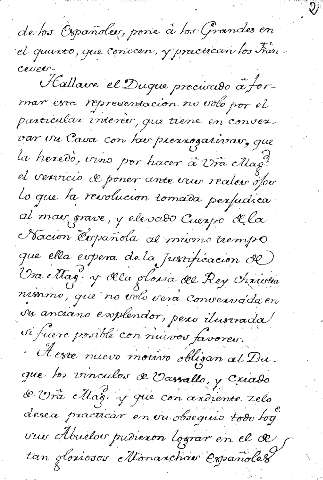 2
de los Españoles, pone â los Grandes en
el quarto, que conocen, y practican los Fran-
ceses.
Hallase el Duque precisado â for-
mar esta representacion no solo por el
particular interès, que tiene en conser-
var su Casa con las prerrogativas, que
la heredò, sino por hacer â Vrâ Magd.
el servicio de poner ante sus reales ojos
lo que la revolucion tomada perjudica
al mas grave, y elevado Cuerpo de la
Nacion Española al mismo tiempo
que ella espera de la Justificacion de
Vrâ Magd. y de la gloria de Rey Christia
nissimo, que no solo serà conservada en
su anciano explendor, pero ilustrada
si fuere posible con nuevos favores.
A este nuevo motivo obligan al Du-
que los vinculos de Vassallo, y Criado
de Vrâ Magd. y que con ardiente zelo
desea practicar en su obsequio todo lo qe.
sus Abuelos pudieron lograr en el de
tan gloriosos Monarchas Españoles